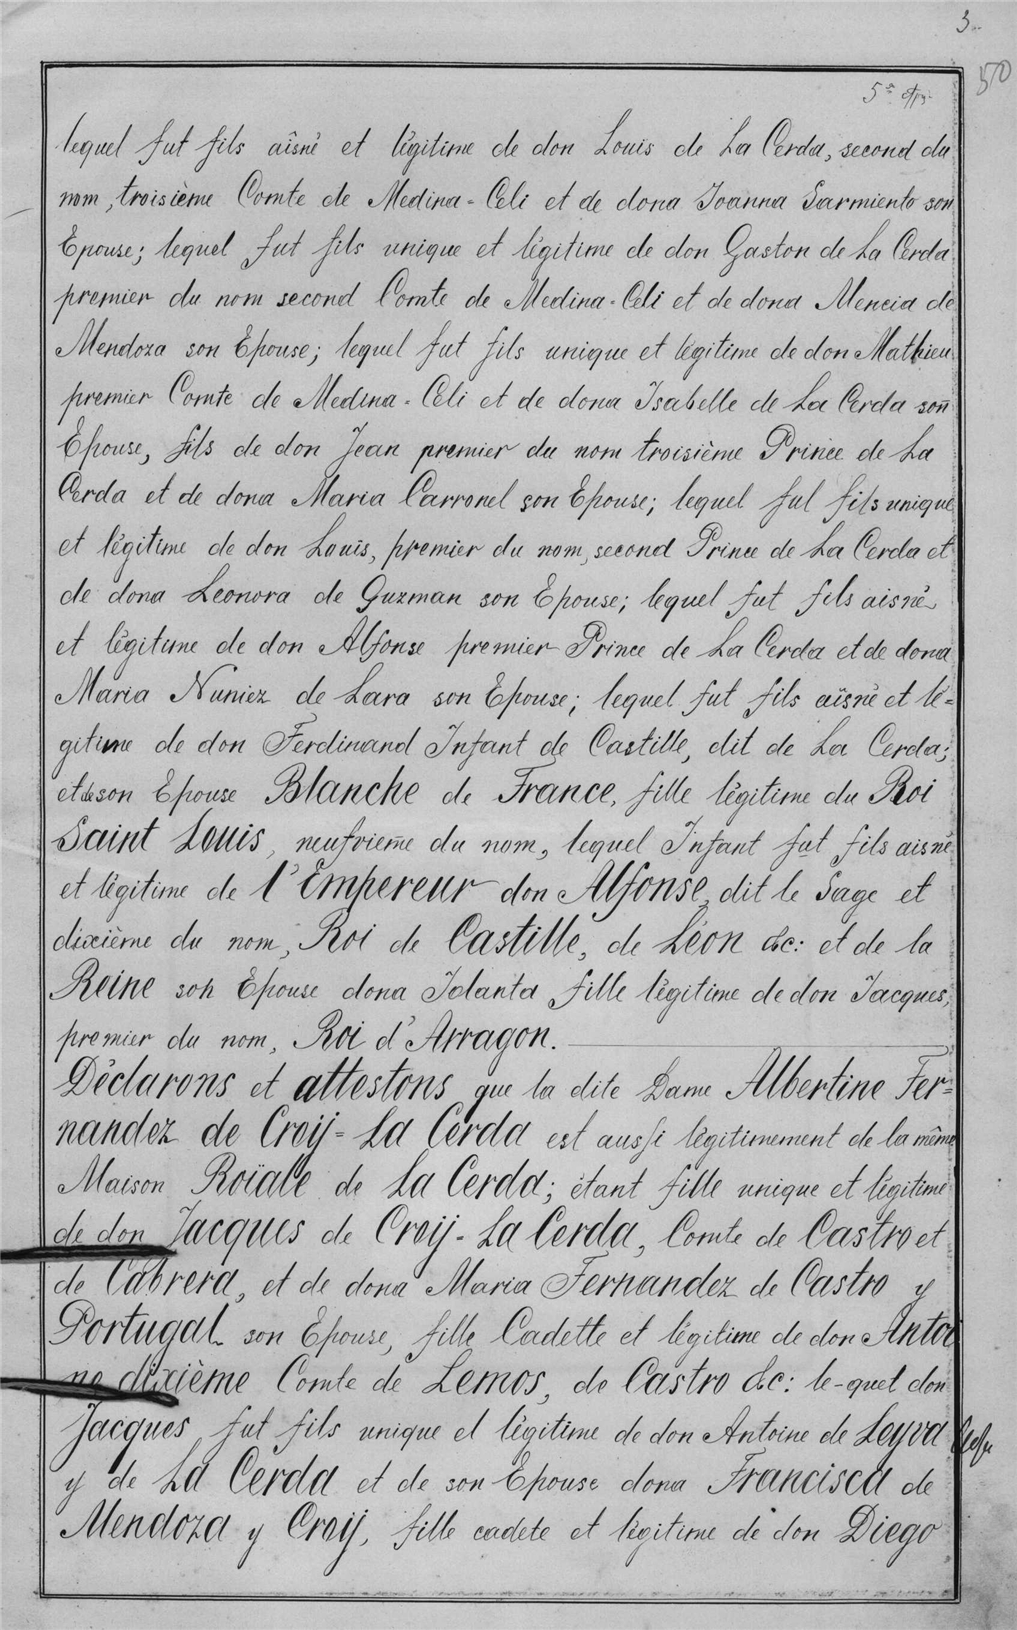 3.
50
lequel fut fils aîsné et légitime de don Louis de La Cerda, second du
nom, troisième Comte de Medina-Celi et de dona Joanna Sarmiento son
Epouse; lequel fut fils unique et légitime de don Gaston de La Cerda
premier du nom second Comte de Medina-Celi et de dona Mencia de
Mendoza son Epouse; lequel fut fils unique et légitime de don Mathieu
premier Comte de Medina-Celi et de dona Isabelle de La Cerda son
Epouse, fils de don Jean premier du nom troisième Prince de La
Cerda et de dona Maria Carronel son Epouse; lequel fut fils unique
et légitime de don Louis, premier du nom, second Prince de La Cerda et
de dona Leonora de Guzman son Epouse; lequel fut fils aisné
et légitime de don Alfonse premier Prince de La Cerda et de dona
Maria Nuniez de Lara son Epouse; lequel fut fils aîsné et lé-
gitime de don Ferdinand Infant de Castille, dit de La Cerda;
et de son Epouse Blanche de France, fille légitime du Roi
Saint Louis, neufvième du nom, lequel Infant fut fils aisné
et légitime de l'Empereur don Alfonse, dit le Sage et
dixième du nom, Roi de Castille, de Léon &c: et de la
Reine son Epouse dona Jolanta fille légitime de don Jacques,
premier du nom, Roi d'Arragon.
Déclarons et attestons que la dite Dame Albertine Fer-
nandez de Croij-La Cerda est aussi légitimement de la même
Maison Roïale de La Cerda; étant fille unique et légitime
de don Jacques de Croij-La Cerda, Comte de Castro et
de Cabrera, et de dona Maria Fernandez de Castro y
Portugal son Epouse, fille Cadette et légitime de don Antoi
ne dixième Comte de Lemos, de Castro &c: le-quel don
Jacques fut fils unique et légitime de don Antoine de Leyva
y de La Cerda et de son Epouse dona Francisca de
Mendoza y Croij, fille cadete et légitime de don Diego